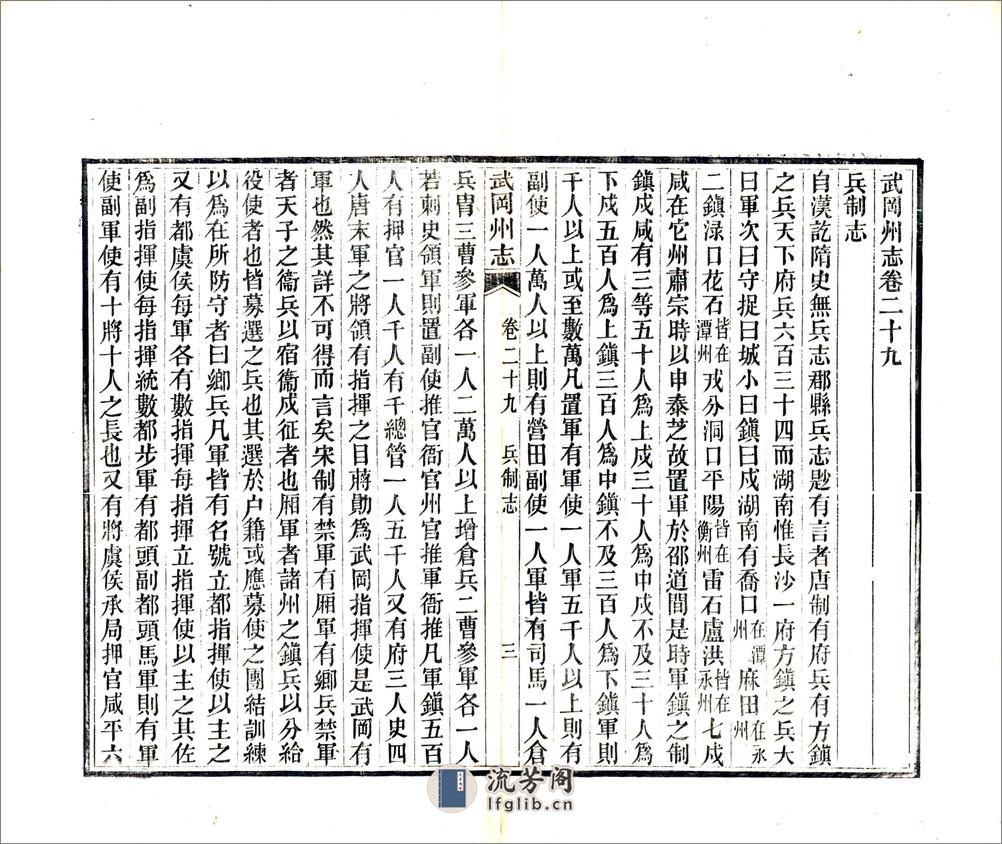 武岡州志卷二十九
兵制志
自漢訖隋史無兵志郡縣兵志尟有言者唐制有府兵有方鎭
之兵天下府兵六百三十四而湖南惟長沙一府方鎭之兵大
曰軍次曰守捉曰城小曰鎭曰戍湖南有喬口在潭州麻田在永州
二鎭淥口花石皆在潭州戎分洞口平陽皆在衡州雷石盧洪皆在永州七戍
咸在它州肅宗時以申泰芝故置軍於邵道間是時軍鎭之制
鎭戍咸有三等五十人爲上戍三十人爲中戍不及三十人爲
下戍五百人爲上鎭三百人爲中鎭不及三百人爲下鎭軍則
千人以上或至數萬凡置軍有軍使一人軍五千人以上則有
副使一人萬人以上則有營田副使一人軍皆有司馬一人倉
武岡州志 卷二十九 兵制志 三
兵胄三曹參軍各一人二萬人以上增倉兵二曹參軍各一人
若刺史領軍則置副使推官衙官州官推軍衙推凡軍鎭五百
人有押官一人千人有千總管一人五千人又有府三人史四
人唐末軍之將領有指揮之目蔣勛爲武岡指揮使是武岡有
軍也然其詳不可得而言矣宋制有禁軍有厢軍有鄉兵禁軍
者天子之衞兵以宿衞戍征者也厢軍者諸州之鎭兵以分給
役使者也皆募選之兵也其選於户籍或應募使之團結訓練
以爲在所防守者曰鄉兵凡軍皆有名號立都指揮使以主之
又有都虞侯每軍各有數指揮每指揮立指揮使以主之其佐
爲副指揮使每指揮統數都步軍有都頭副都頭馬軍則有軍
使副軍使有十將十人之長也又有將虞侯承局押官咸平六
流芳阁
lfglib.cn